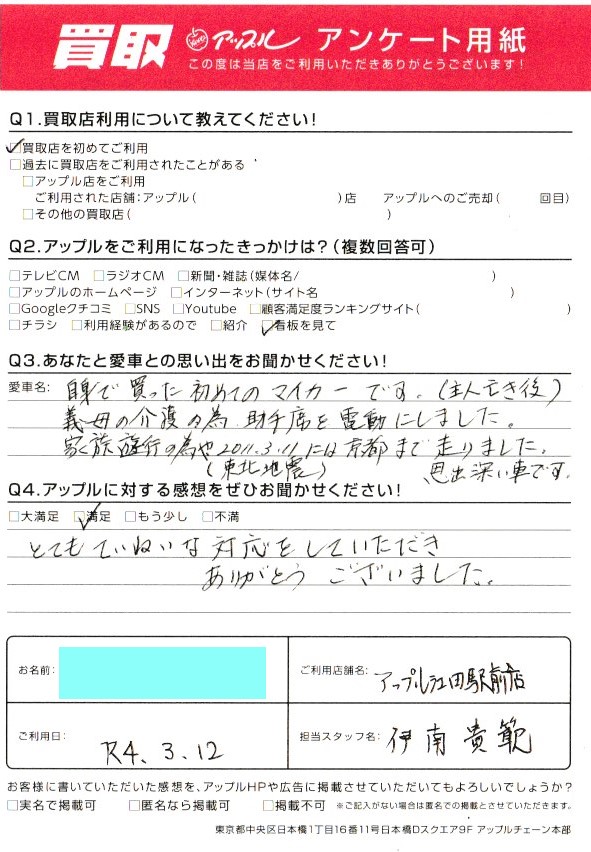 買取 アップル アンケート用紙
この度は当店をご利用いただきありがとうございます!
Q1.買取店利用について教えてください!
☑買取店を初めてご利用
□過去に買取店をご利用されたことがある
□アップル店をご利用
ご利用された店舗:アップル( )店 アップルへのご売却( 回目)
□その他の買取店( )
Q2.アップルをご利用になったきっかけは?(複数回答可)
□テレビCM □ラジオCM □新聞・雑誌(媒体名/ )
□アップルのホームページ □インターネット(サイト名 )
□Googleクチコミ □SNS □Youtube □顧客満足度ランキングサイト( )
□チラシ □利用経験があるので □紹介 ☑看板を見て
Q3.あなたと愛車との思い出をお聞かせください!
愛車名: 自身で買った初めてのマイカーです。(主人亡き後)
義母の介護の為 助手席を電動にしました。
家族旅行の為や2011.3.11には京都まで走りました。
(東北地震) 思出深い車です。
Q4.アップルに対する感想をぜひお聞かせください!
□大満足 ☑満足 □もう少し □不満
とてもていねいな対応をしていただき
ありがとうございました。
お名前:
ご利用店舗名: アップル江田駅前店
ご利用日: R4.3.12
担当スタッフ名: 伊南貴範
お客様に書いていただいた感想を、アップルHPや広告に掲載させていただいてもよろしいでしょうか?
□実名で掲載可 □匿名なら掲載可 □掲載不可 ※ご記入がない場合は匿名での掲載とさせていただきます。
東京都中央区日本橋1丁目16番11号日本橋Dスクエア9F アップルチェーン本部